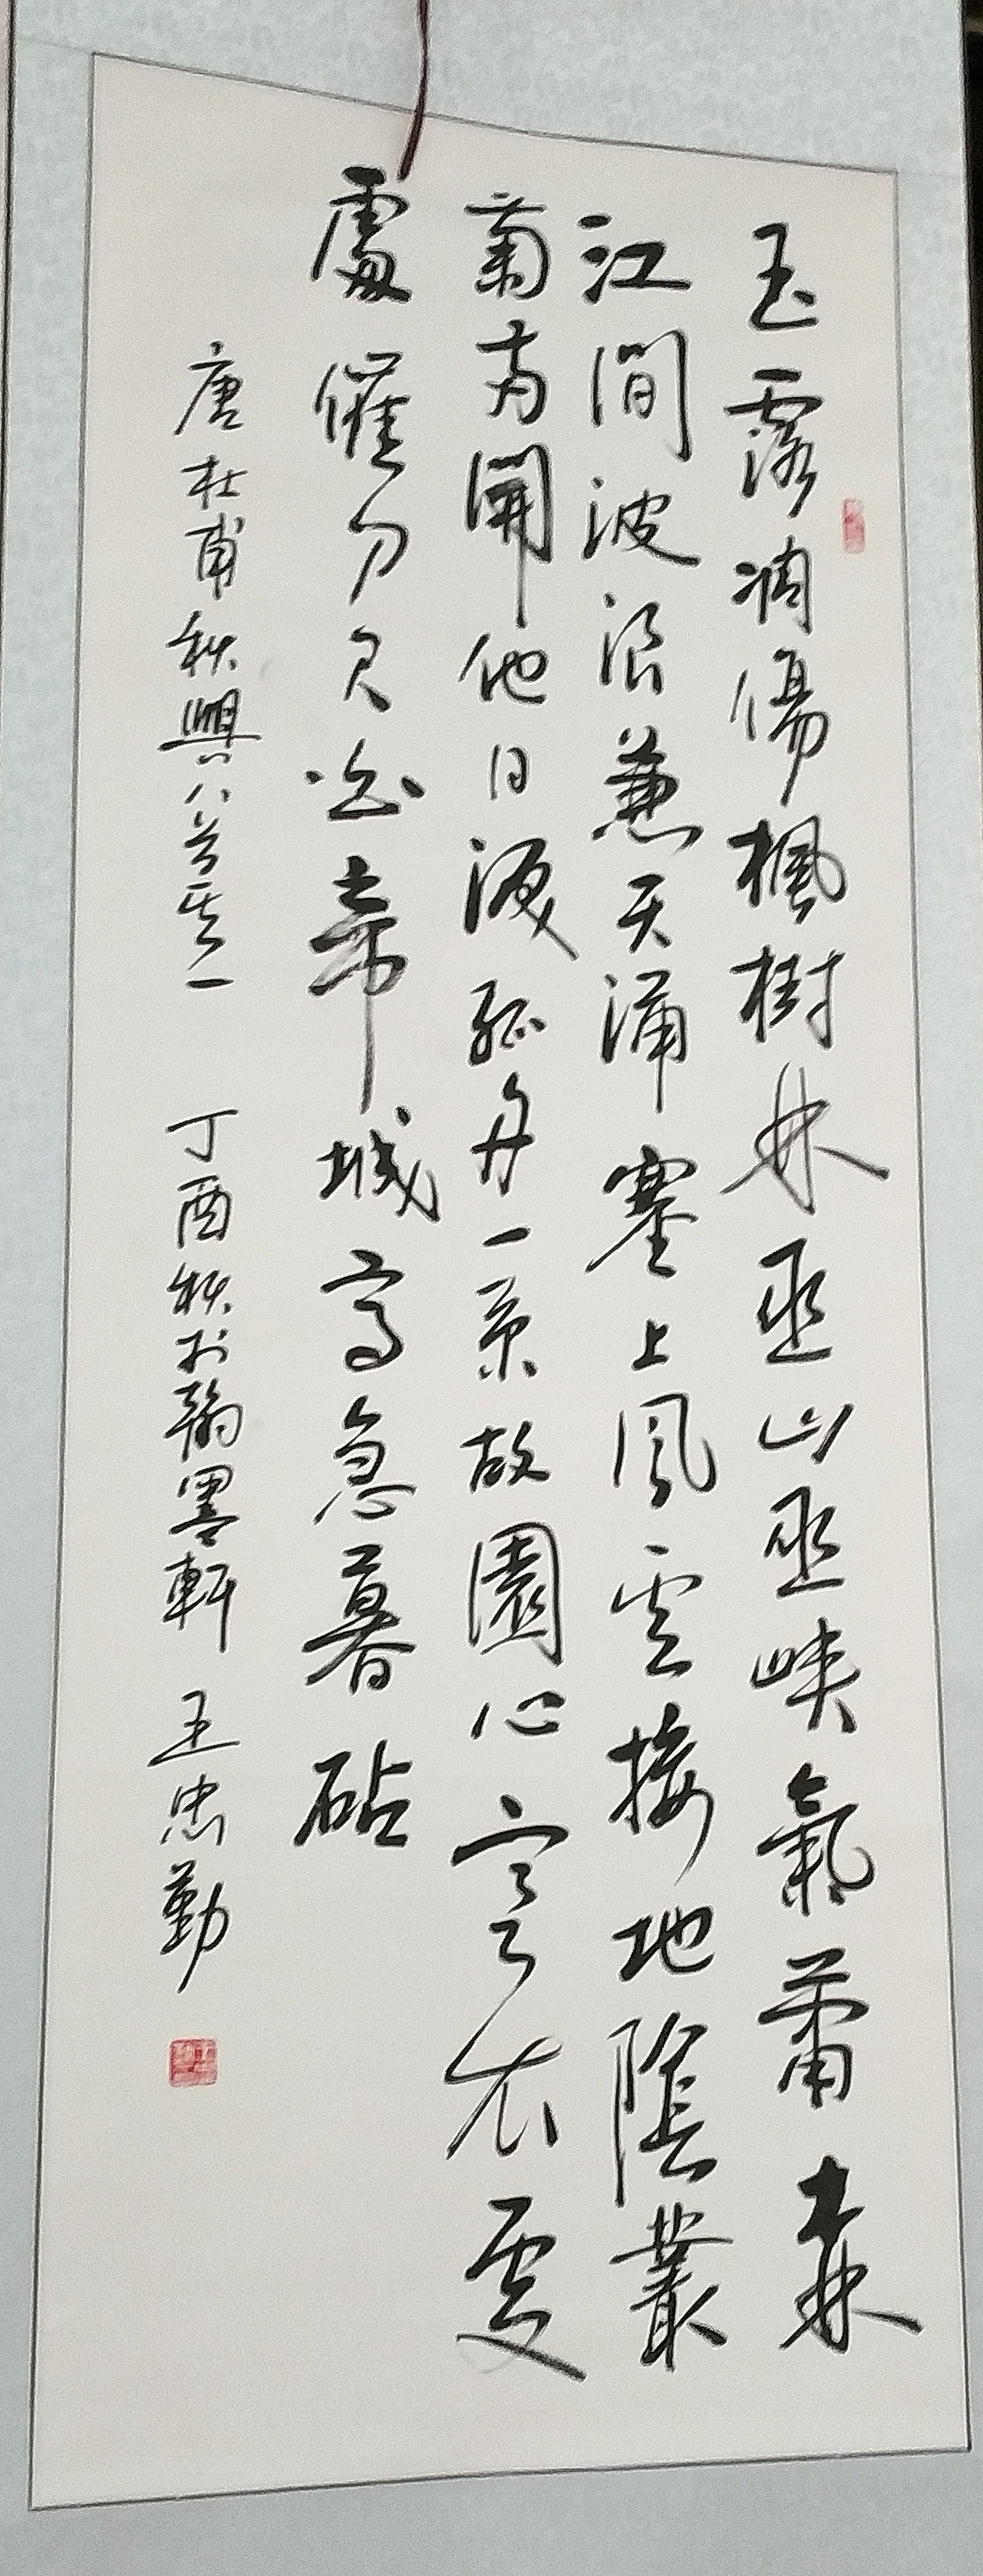 玉露凋傷楓樹林巫山巫峽氣蕭森
江間波浪兼天涌塞上風云接地陰叢
菊兩開他日淚孤舟一系故園心寒衣處
處催刀尺白帝城高急暮砧
唐杜甫秋興八首其一 丁酉秋於翰墨軒 王忠勤